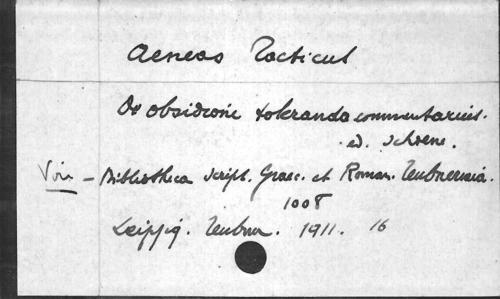 Aeneas Tacticus
De obsidione toleranda commentarius.
ed. Schoene.
Voir – Bibliotheca script. Graec. et Roman. Teubneriana.
1008
Leipzig. Teubner. 1911. 16